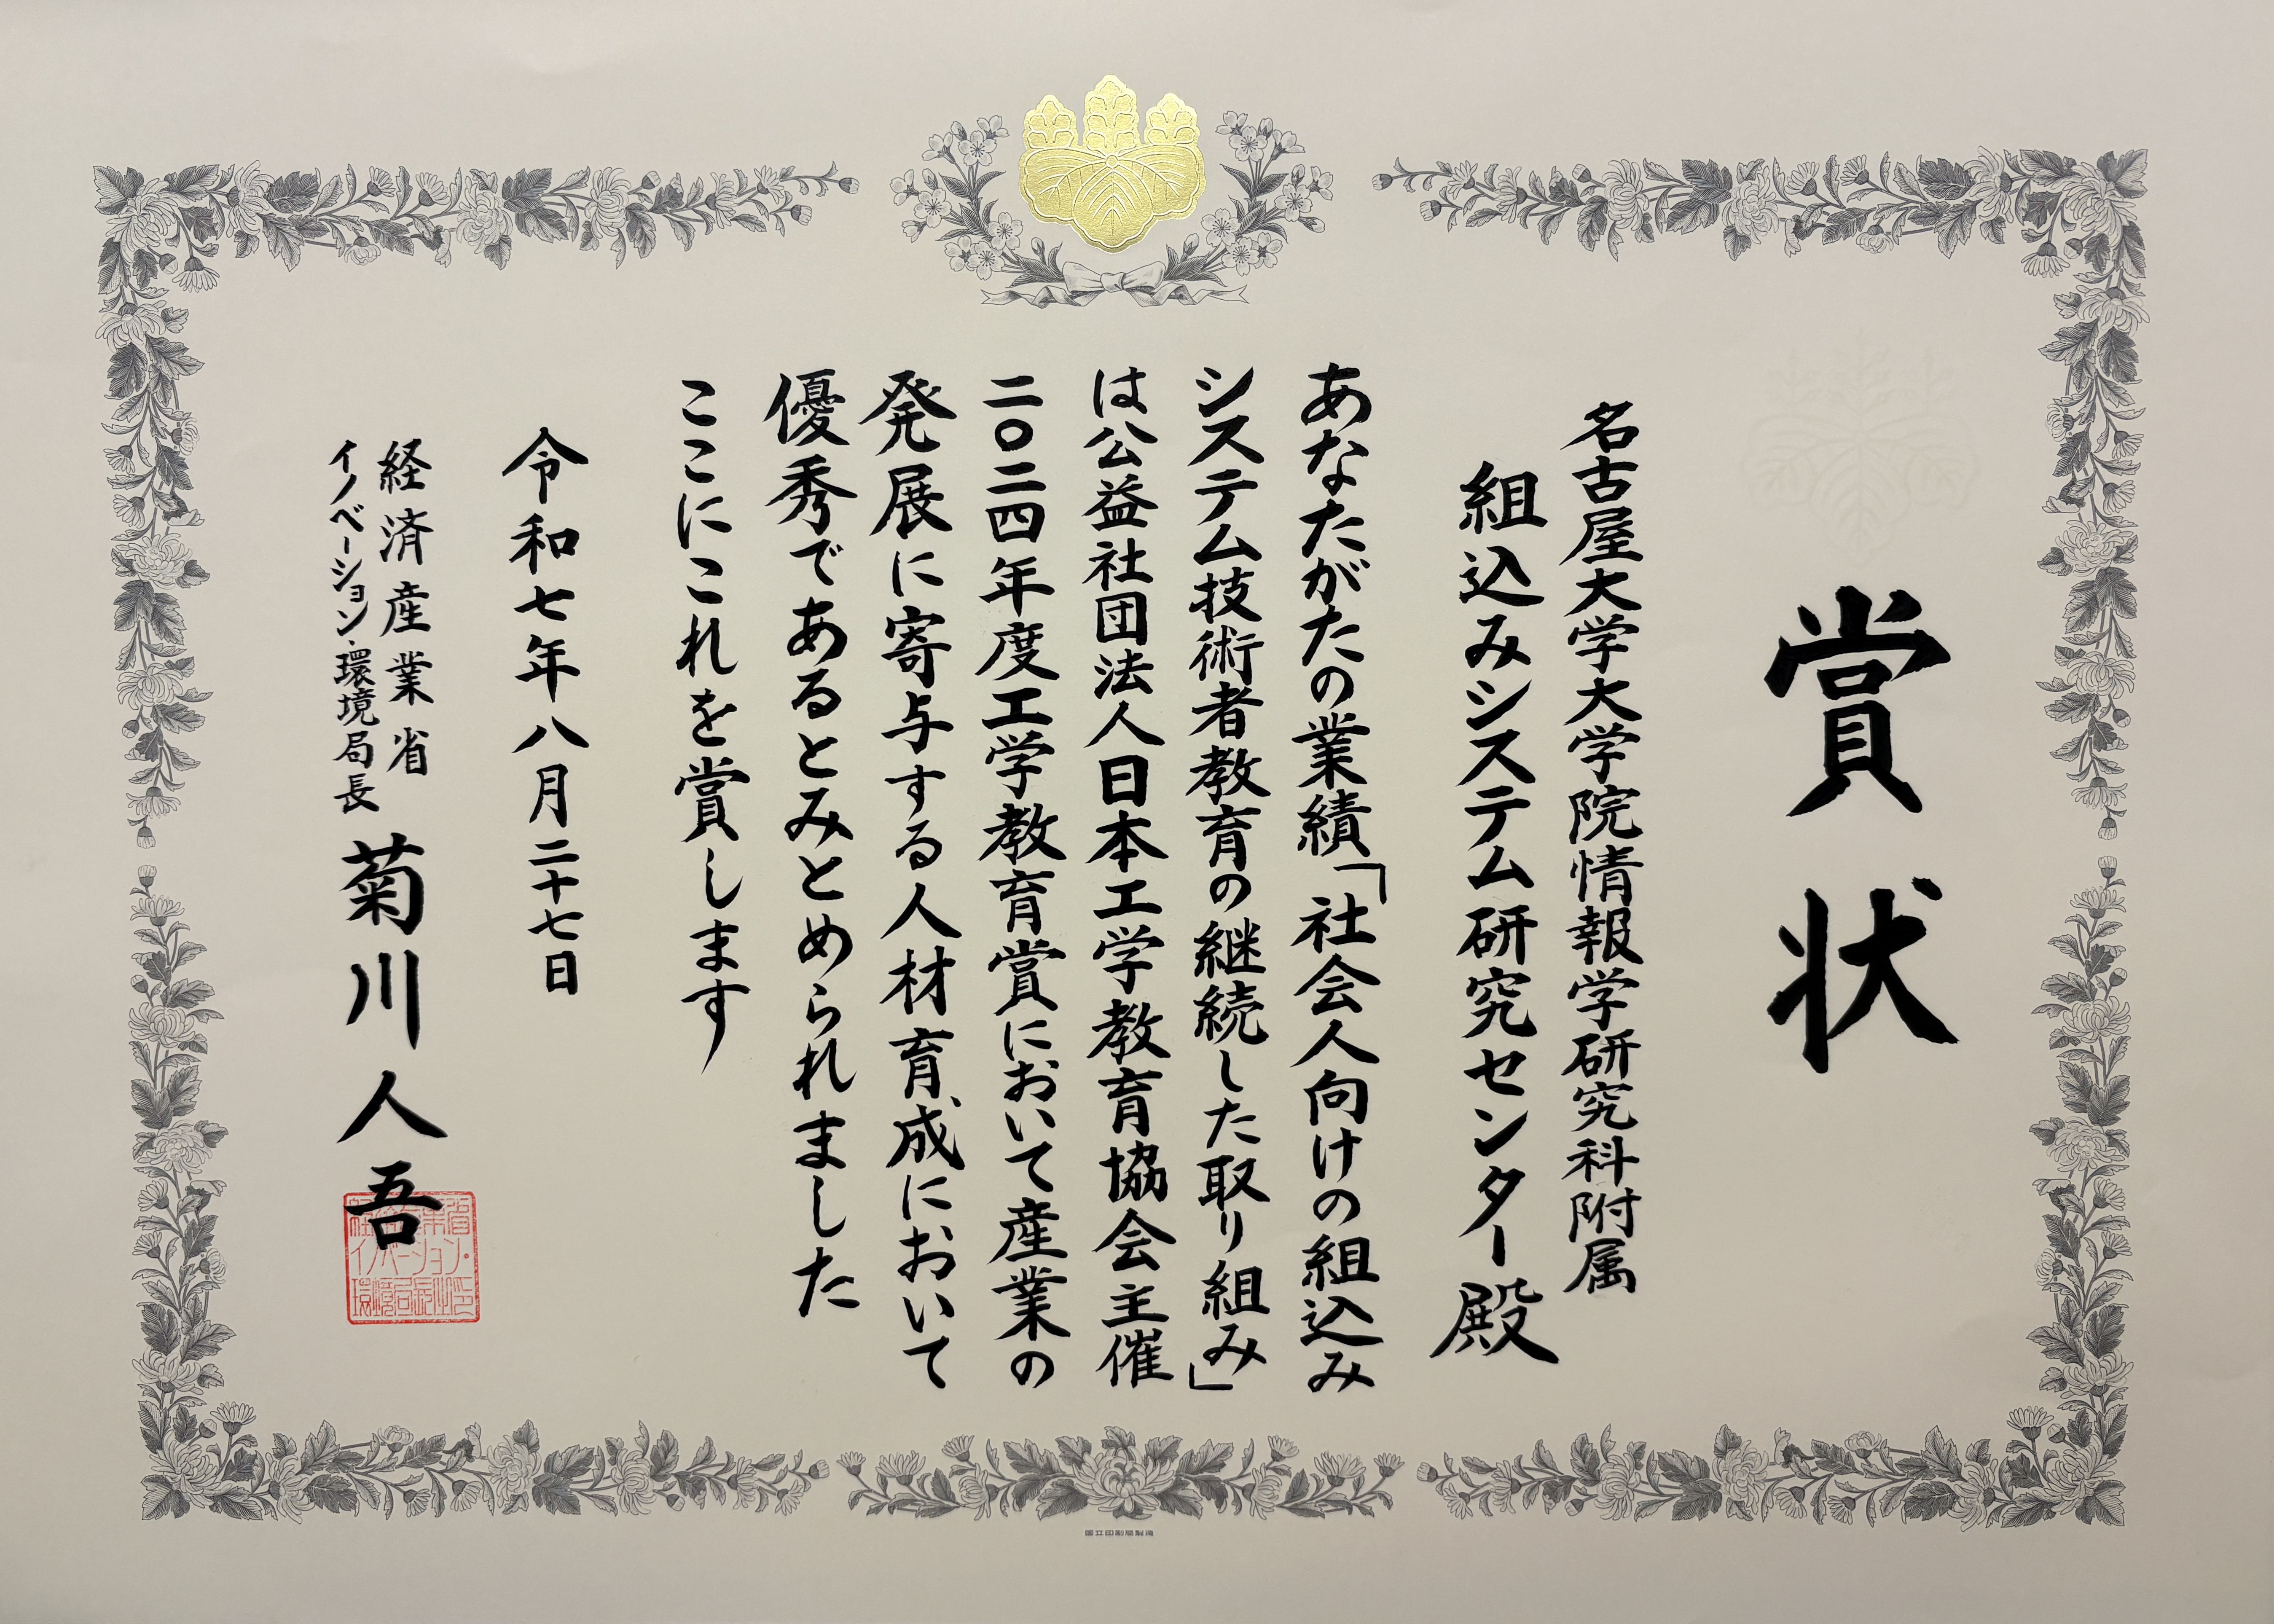 賞状
名古屋大学大学院情報学研究科附属
組込みシステム研究センター殿
あなたがたの業績「社会人向けの組込み
システム技術者教育の継続した取り組み」
は公益社団法人日本工学教育協会主催
二〇二四年度工学教育賞において産業の
発展に寄与する人材育成において
優秀であるとみとめられました
ここにこれを賞します
令和七年八月二十七日
経済産業省
イノベーション・環境局長
菊川人吾
国立印刷局製造